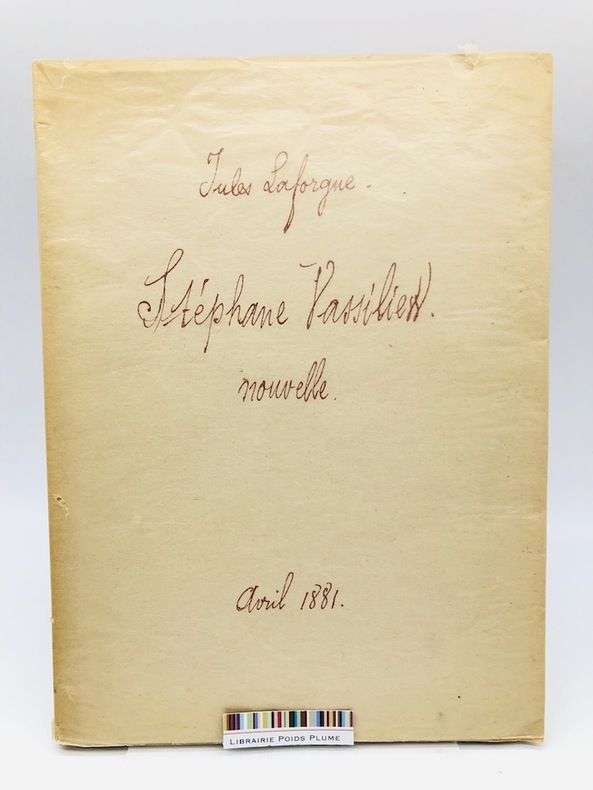 Jules Laforgue.
Stéphane Vassiliew.
nouvelle.
Avril 1881.
LIBRAIRIE POIDS PLUME